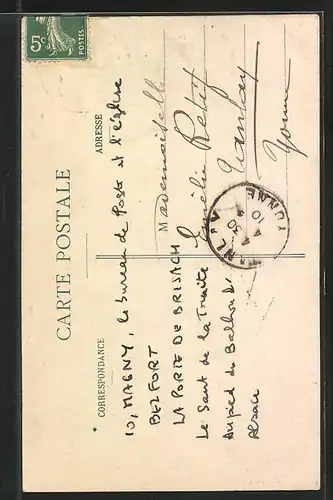 5c
POSTES
CARTE POSTALE
CORRESPONDANCE
ADRESSE
10, MAGNY, le bureau de Poste et l'église
BELFORT
LA PORTE DE BRISACH
Le Saut de la Truite
Au pied du Ballon d'
Alsace
Mademoiselle
Amélie Rétif
Tanlay
Yonne
TANLAY
YONNE